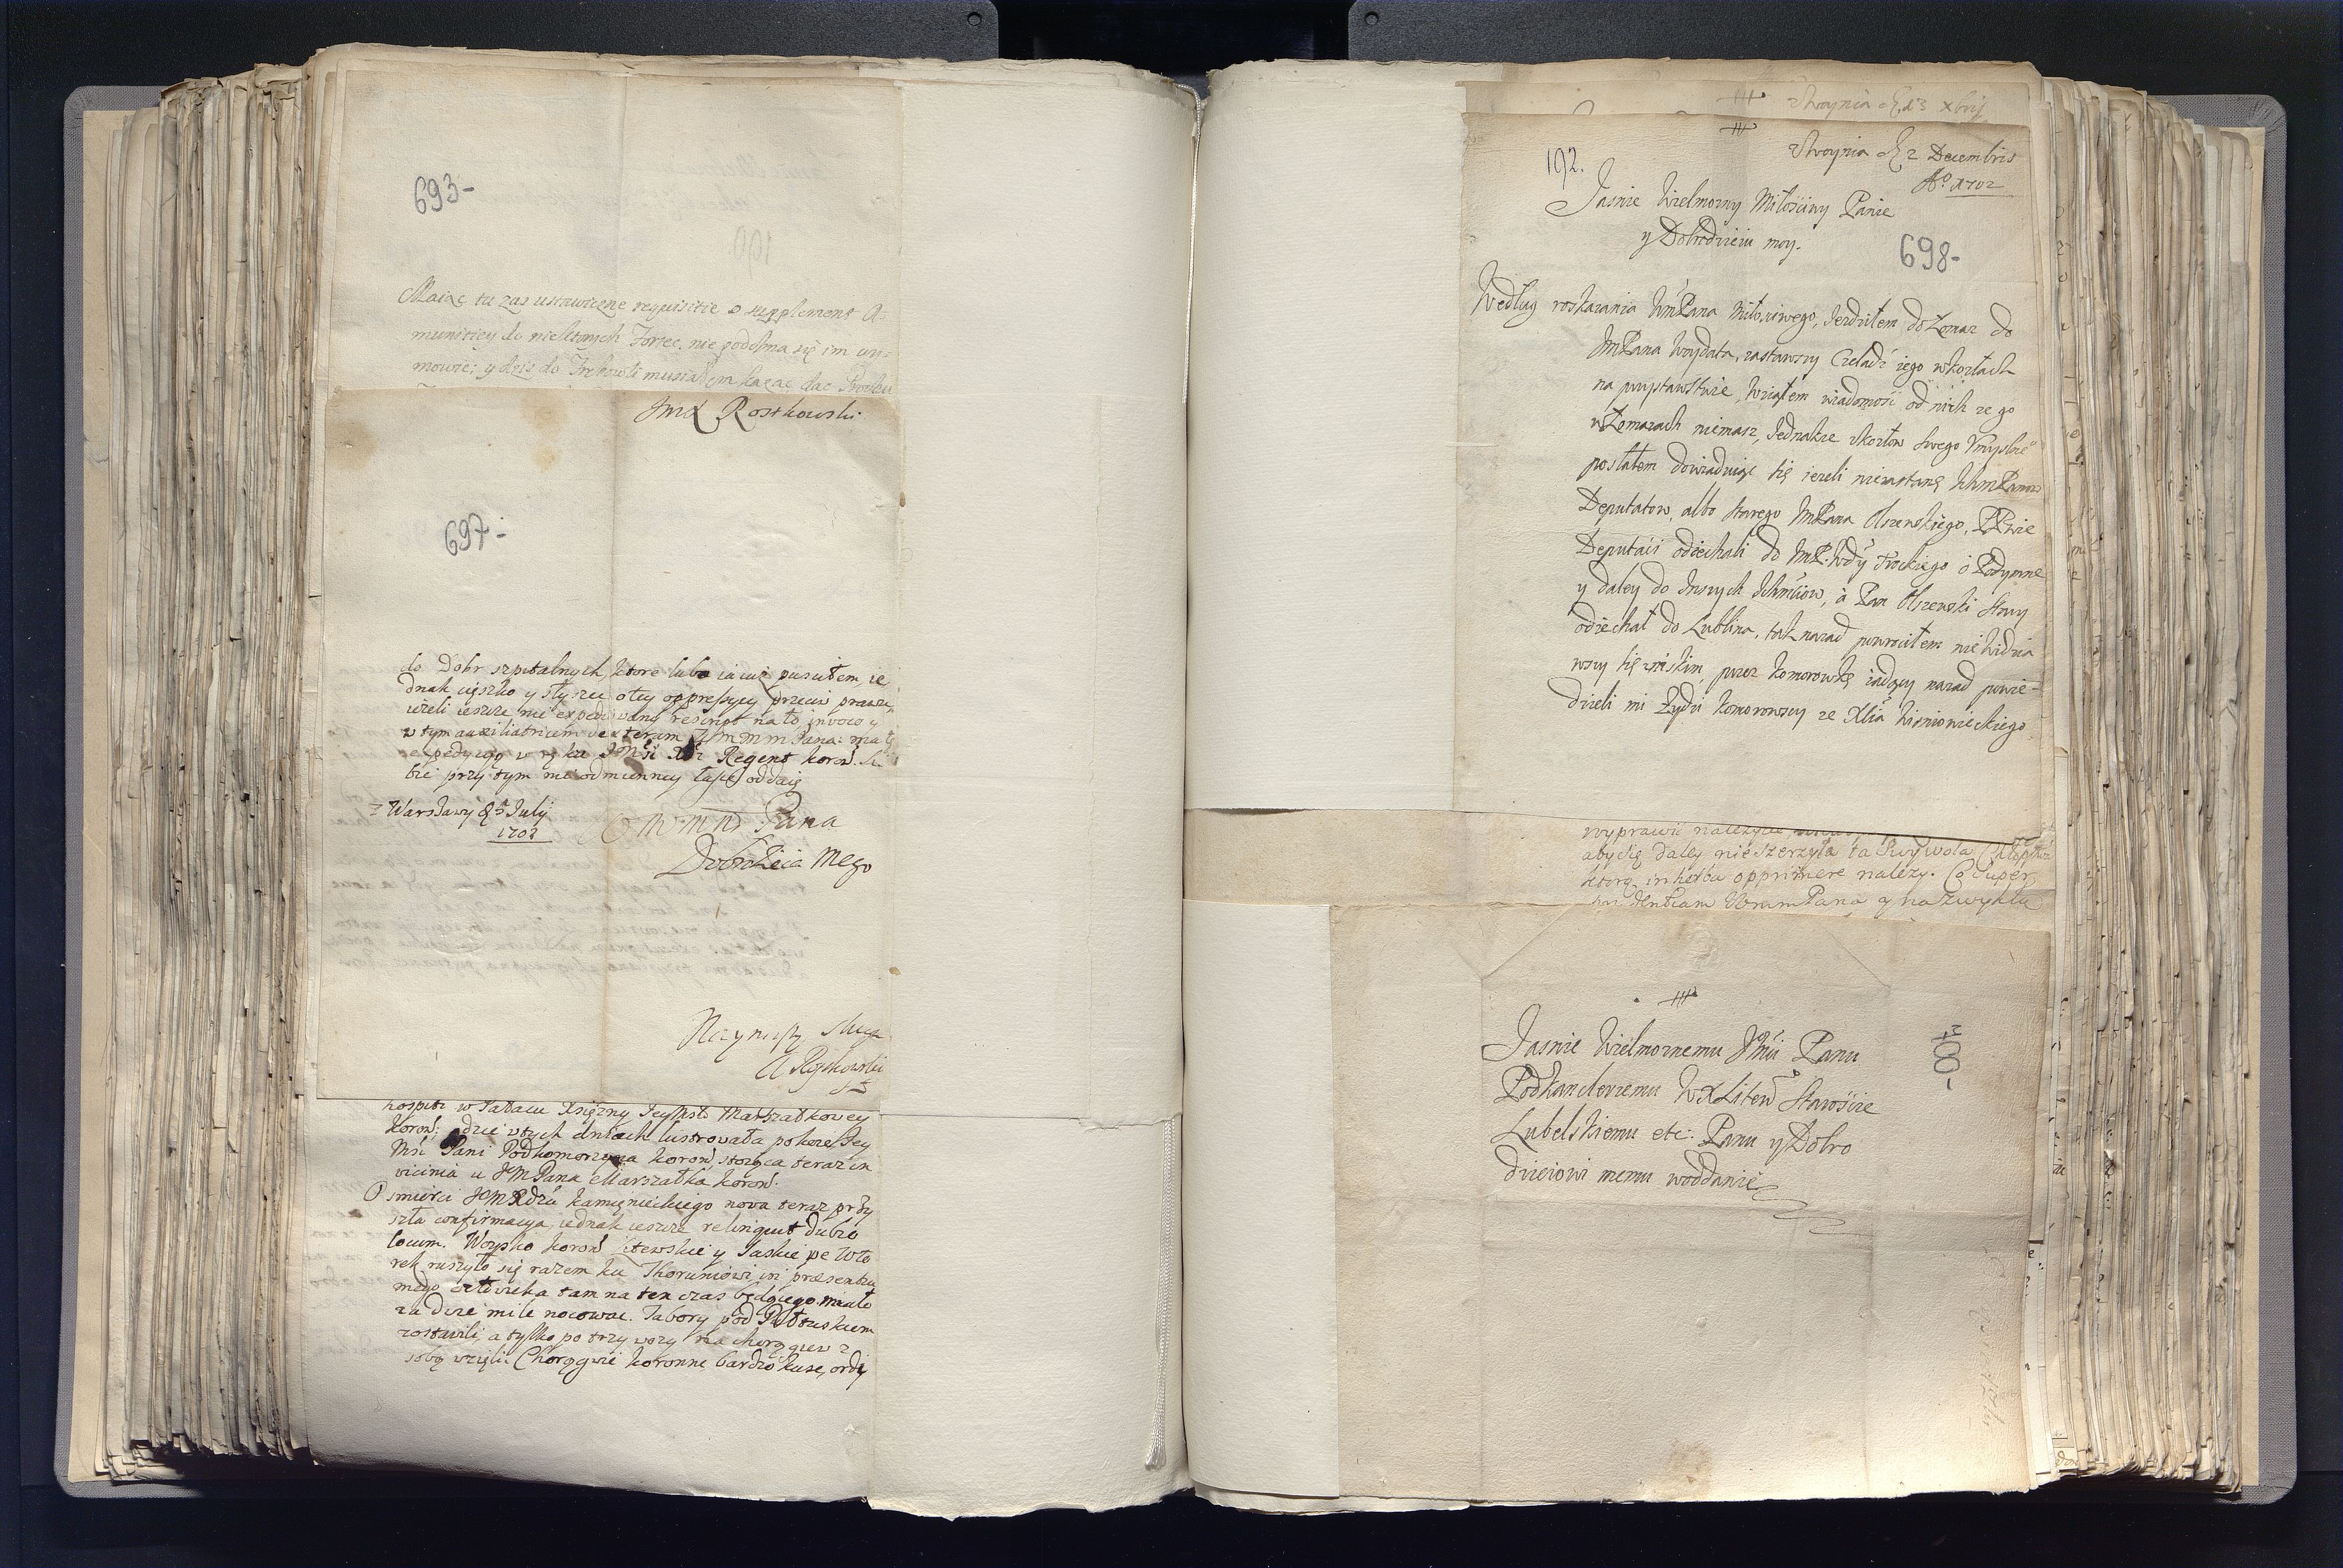 693-
Maiąc tu zas ustawiczne requisitie o supplement A
municiey do niektorych Fortec, nie podobna się im wy-
mowic; y dzis do Trebowli musiałem kazac dac
JmX Roskowski
697-
do Dobr szpitalnych, ktore lubo ia iuz pusciłem, ie
dnak cięszko y słyszec otey oppressyey przeciw prawu,
iezeli ieszcze nie expediowany rescript na to invoco y
w tym auxiliatricem dexteram WMMM Pana: ma tę
expedycyą w ręku JMsci Xdz Regent koron.
bie przy tym nieodmienney łasce oddaię
z Warszawy 8 July
1702
WMM Pana
Dobrodzieia Mego
Naynizszy sługa
hospiti w Pałacu Xsięzny Jeymsci Marszałkowey
koron: gdzie wtych dniach lustrowała pokoie Jey
Msc Pani Podkomorzyna koron stoiąca teraz in
vicinia u JMPana Marszałka koron.
O smierci JMXdza kamienieckiego nova teraz przy
szła confirmacya, iednak ieszcze relinquit dubio
locum. Woysko koron Litewskie y Saskie we Wto
rek ruszyło się razem ku Thoruniowi in præsentia
mego człowieka tam na ten czas będącego miało
za dwie mile nocowac. Tabory pod Pułtuskiem
zostawili, a tylko po trzy wozy na chorągiew z
sobą wzięli: Chorągwie koronne bardzo kuse, ordy
192.
2 Decembris
Aº 1702
Jasnie Wielmozny Miłosciwy Panie
y Dobrodzieiu moy.
698-
Według roskazania WmPana Miłosciwego, Jezdziłem do Łomaz do
JmPana Woydata, zastawszy Czeladz iego wKozłach
na przystawstwie, wziąłem wiadomosc od nich ze go
wŁomazach niemasz, Jednakze zKozłow swego Umyslne
posłałem dowiaduiąc się iezeli niezastanę IchmPanow
Deputatow, albo starego JmPana Olszewskiego, PPwie
Deputaci odiechali do JmP. Wdy Trockiego o Podymne
y daley do Inszych Ichmciow, a Pan Olszewski stary
odiechał do Lublina, tak nazad powrociłem niewidzia
wszy się zniskim, przez Komorowkę iadący nazad powie-
dzieli mi Zydzi Komorowscy ze Xiia Wisniowieckiego
wyprawic nalezycie,
aby się daley nieszerzyła ta Swywola Chłopska
ktorą in herba opprimere nalezy. Co super
prudentiam WmmPana y na zwykłą
Jasnie Wielmoznemu Jmci Panu
Podkanclerzemu WXLitew Staroscie
Lubelskiemu etc: Panu y Dobro
dzieiowi memu woddanie
700-